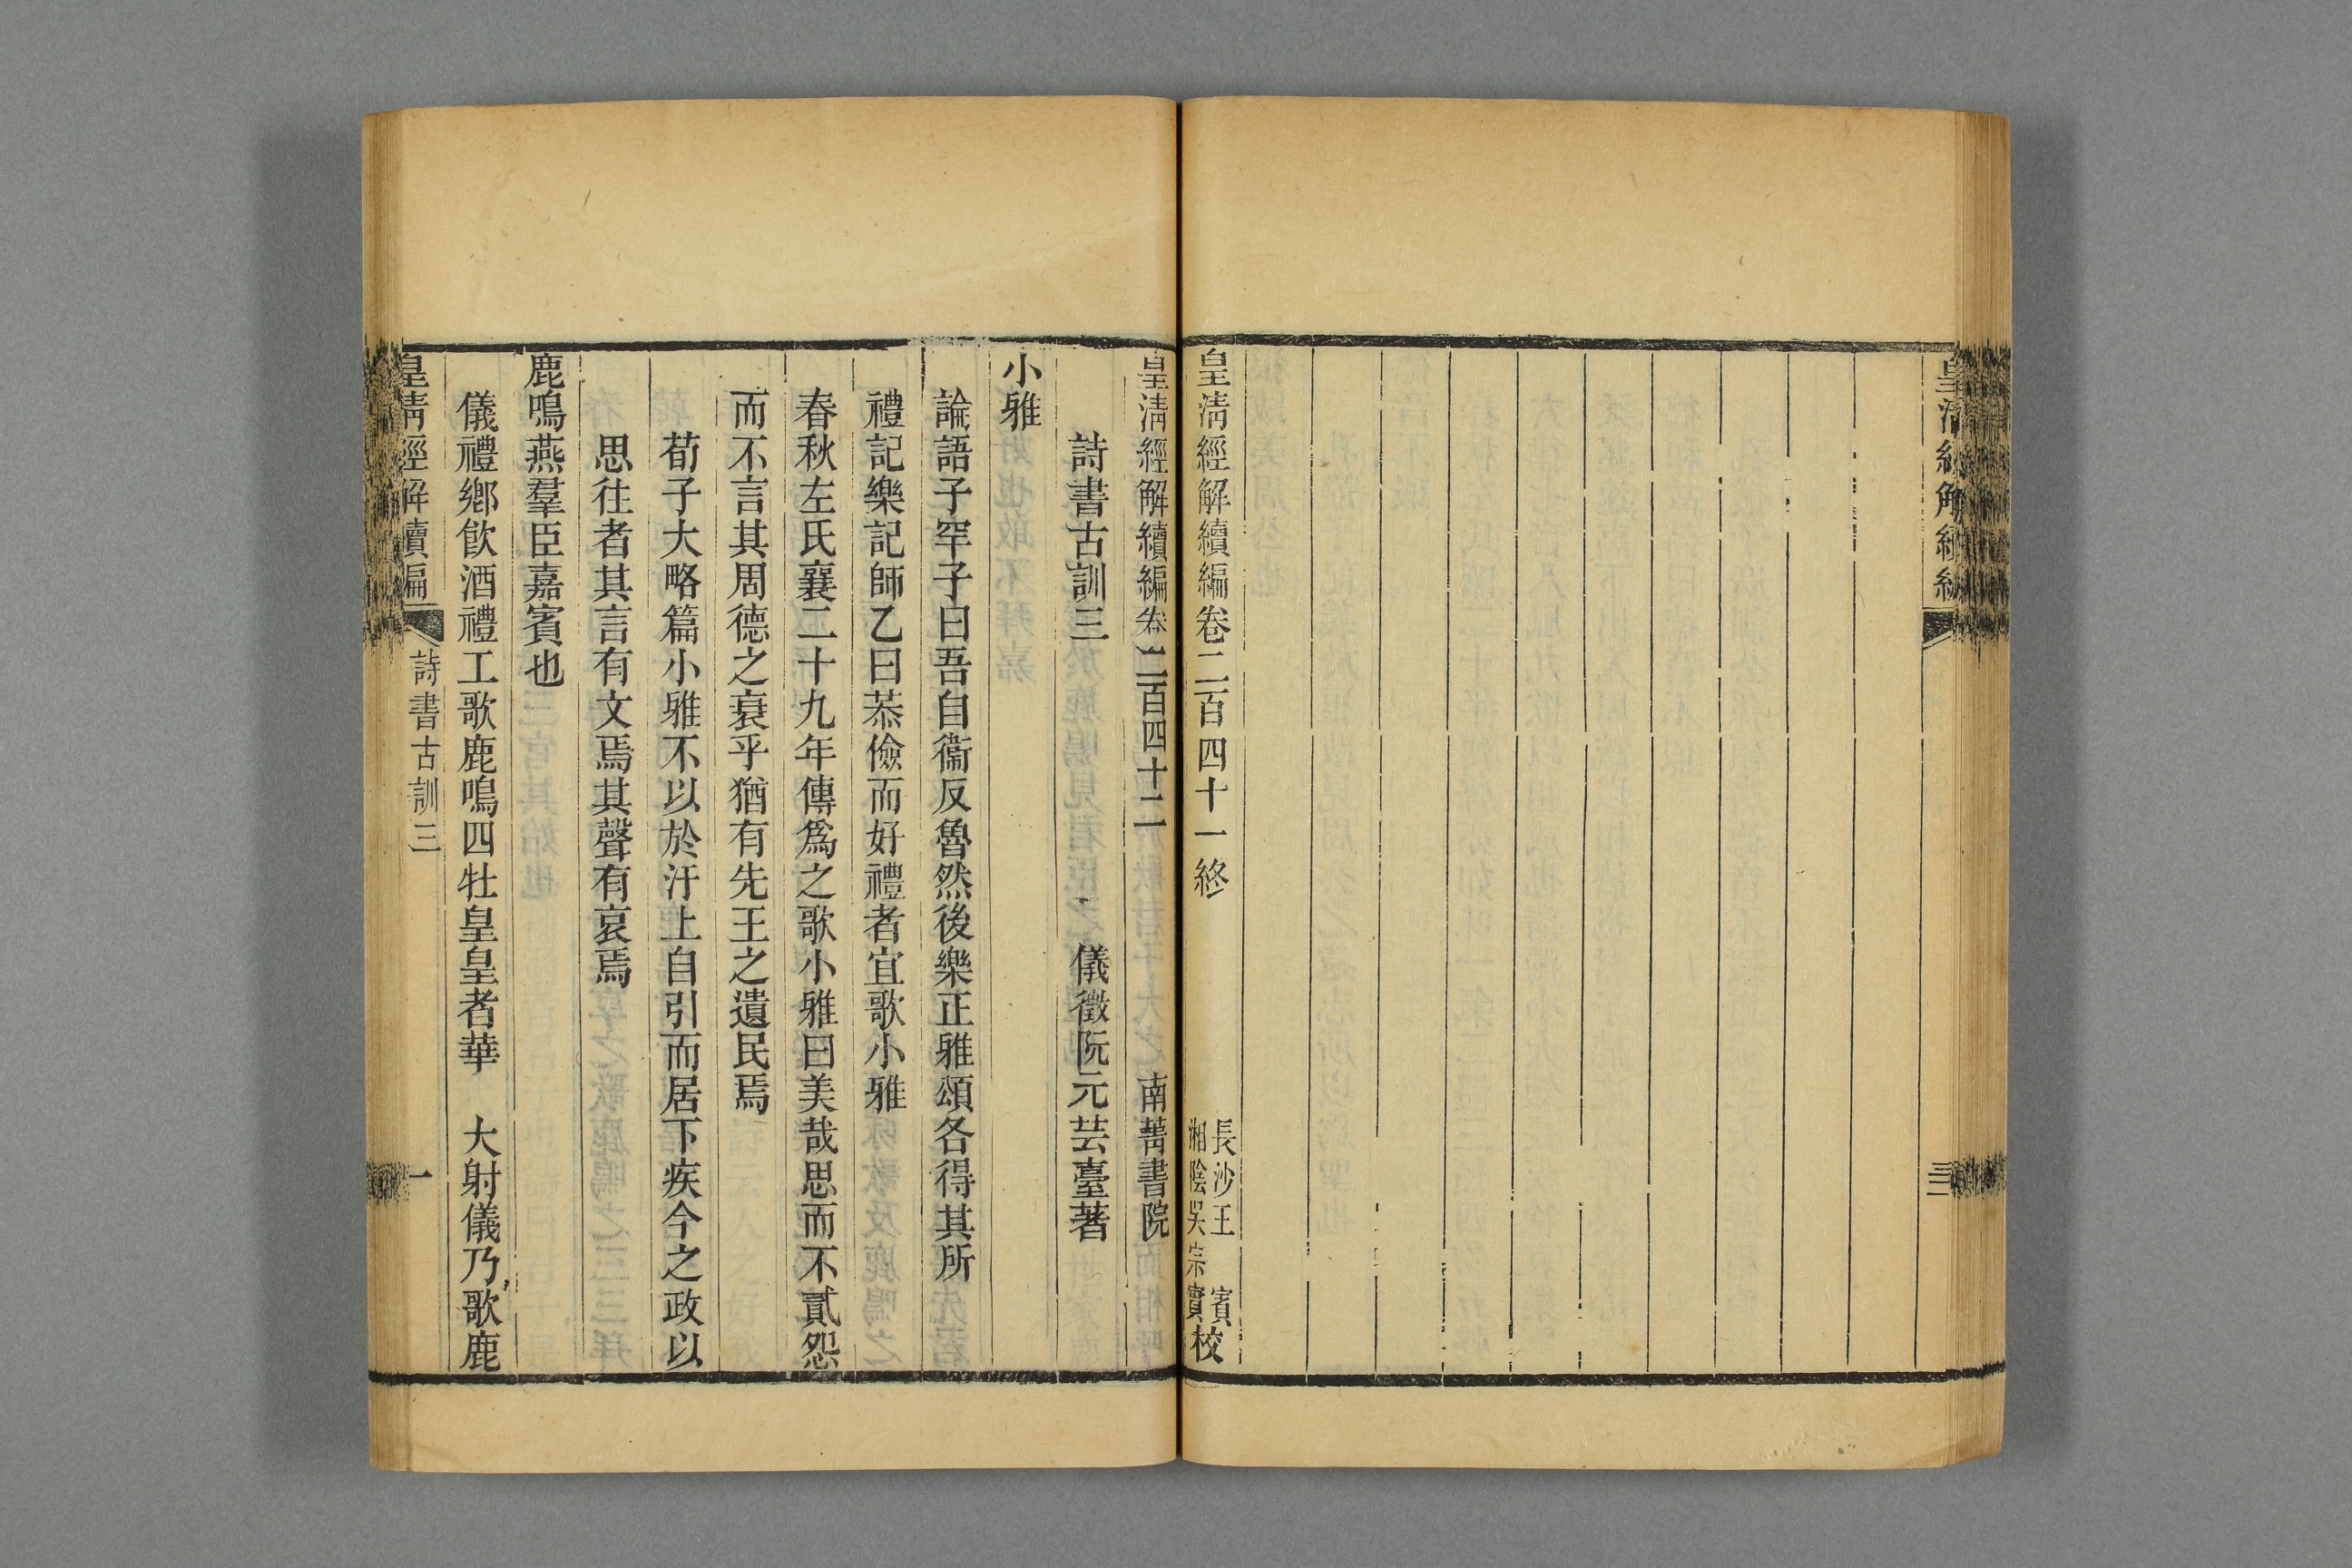 皇清經解續編
三三
皇清經解續編卷二百四十一終
長沙王 賓
湘陰吳宗實校
皇清經解續編卷二百四十二 南菁書院
詩書古訓三 儀徵阮元芸臺著
小雅
論語子罕子曰吾自衞反魯然後樂正雅頌各得其所
禮記樂記師乙曰恭儉而好禮者宜歌小雅
春秋左氏襄二十九年傳爲之歌小雅曰美哉思而不貳怨
而不言其周德之衰乎猶有先王之遺民焉
荀子大略篇小雅不以於汙上自引而居下疾今之政以
思往者其言有文焉其聲有哀焉
鹿鳴燕羣臣嘉賓也
儀禮鄉飮酒禮工歌鹿鳴四牡皇皇者華 大射儀乃歌鹿
皇清經解續編 詩書古訓三 一